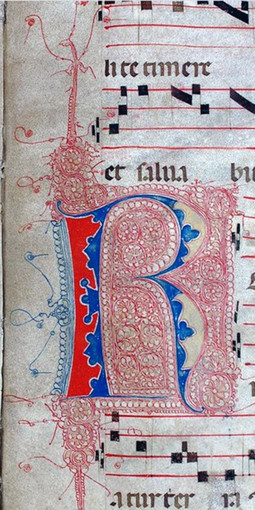 lite timere
et salua bi
R
atur ter ra